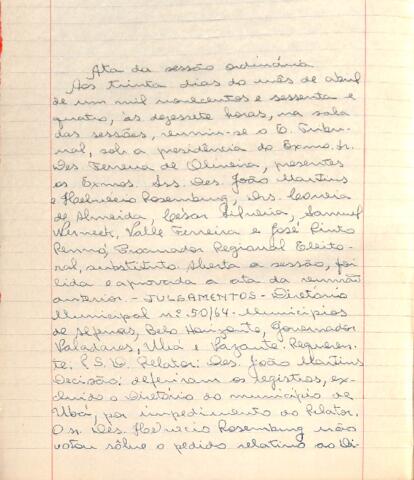 Ata da sessão ordinária
Aos trinta dias do mês de abril
de um mil novecentos e sessenta e
quatro, às dezessete horas, na sala
das sessões, reuniu-se o E. Tribu-
nal, sob a presidência do Exmo. Sr.
Des. Ferreira de Oliveira, presentes
os Exmos. Srs. Des. João Martins
e Helvécio Rosemburg, Drs. Correia
de Almeida, Cesar Silveira, Samuel
Werneck, Valle Ferreira e José Pinto
Renno, Procurador Regional Eleito-
ral, substituto. Aberta a sessão, foi
lida e aprovada a ata da reunião
anterior. - JULGAMENTOS - Diretório
Municipal nº 50/64 - Municípios
de Alfenas, Belo Horizonte, Governador
Valadares, Ubá e Lazante. Requeren-
te: P.S.D. Relator: Des. João Martins
Decisão: deferiram os registros, ex-
cluindo o Diretório do município de
Ubá, por impedimento do Relator.
O sr. Des. Helvécio Rosemburg não
votou sôbre o pedido relativo ao Di-